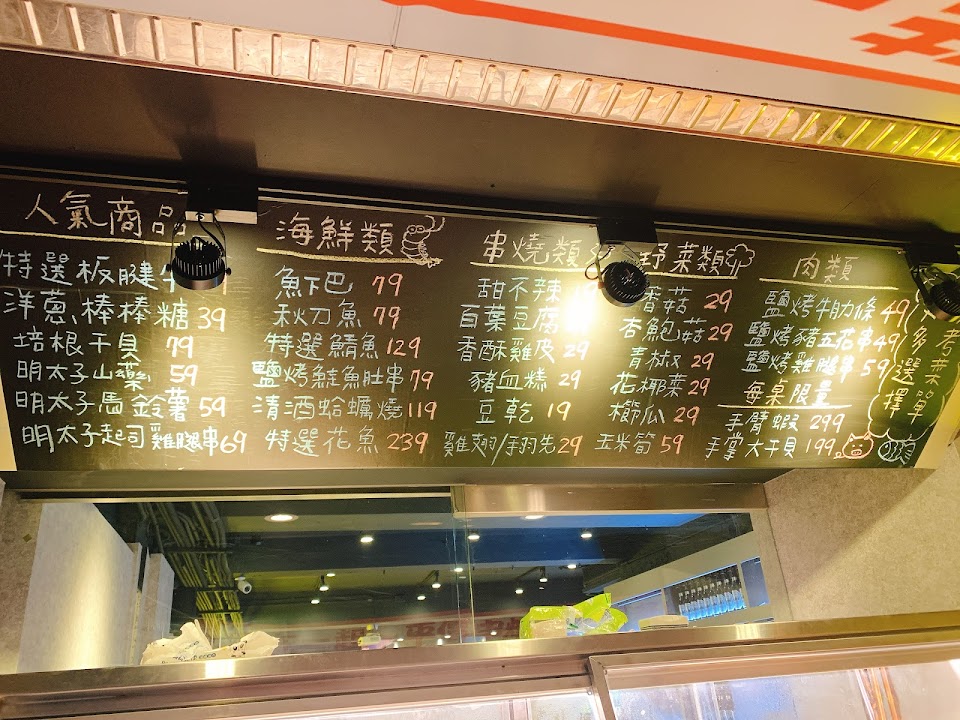 人氣商品
特選板腱牛
洋蔥棒棒糖 39
培根干貝 79
明太子山藥 59
明太子馬鈴薯 59
明太子起司雞腿串 69
海鮮類
魚下巴 79
秋刀魚 79
特選鯖魚 129
鹽烤鮭魚肚串 79
清酒蛤蠣燒 119
特選花魚 239
串燒類
甜不辣
百葉豆腐
香酥雞皮 29
豬血糕 29
豆乾 19
雞翅/手羽先 29
野菜類
香菇 29
杏鮑菇 29
青椒 29
花椰菜 29
櫛瓜 29
玉米筍 59
肉類
鹽烤牛肋條 49
鹽烤豬五花串 49
鹽烤雞腿串 59
每桌限量
手臂蝦 299
手掌大干貝 199
多選擇
考菜單